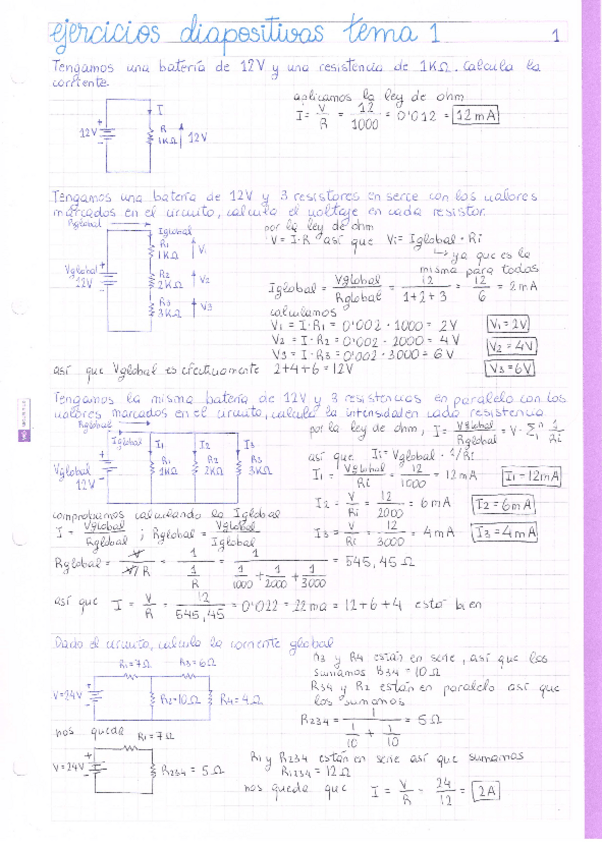 ejercicios diapositivas tema 1
1
Tengamos una batería de 12V y una resistencia de 1KΩ. Calcula la
corriente.
aplicamos la ley de ohm
I = V/R = 12/1000 = 0'012 = 12 mA
I
12V
R
1KΩ
12V
Tengamos una batería de 12V y 3 resistores en serie con los valores
marcados en el circuito, calcula el voltaje en cada resistor.
Rglobal
Iglobal
R1
1KΩ
V1
Vglobal
12V
R2
2KΩ
V2
R3
3KΩ
V3
por la ley de ohm
V = I·R así que Vi = Iglobal · Ri
ya que es la
misma para todos
Iglobal = Vglobal/Rglobal = 12/1+2+3 = 12/6 = 2mA
calculamos
V1 = I·R1 = 0'002 · 1000 = 2V
V1 = 2V
V2 = I·R2 = 0'002 · 2000 = 4V
V2 = 4V
V3 = I·R3 = 0'002 · 3000 = 6V
V3 = 6V
así que Vglobal es efectivamente 2+4+6 = 12V
Tengamos la misma batería de 12V y 3 resistencias en paralelo con los
valores marcados en el circuito, calcula la intensidad en cada resistencia
Rglobal
Iglobal
I1
I2
I3
Vglobal
12V
R1
1KΩ
R2
2KΩ
R3
3KΩ
por la ley de ohm, I = Vglobal/Rglobal = V · Σ 1/Ri
así que Ii = Vglobal · 1/Ri
I1 = Vglobal/Ri = 12/1000 = 12mA
I1 = 12mA
I2 = V/Ri = 12/2000 = 6mA
I2 = 6mA
I3 = V/Ri = 12/3000 = 4mA
I3 = 4mA
comprobamos calculando la Iglobal
I = Vglobal/Rglobal ; Rglobal = Vglobal/Iglobal
Rglobal = V/V/R = 1/1/R = 1/1/1000 + 1/2000 + 1/3000 = 545,45 Ω
así que I = V/R = 12/545,45 = 0'022 = 22ma = 12+6+4 está bien
Dado el circuito, calcula la corriente global
R1 = 7Ω
R3 = 6Ω
V = 24V
R2 = 10Ω
R4 = 4Ω
R3 y R4 están en serie, así que los
sumamos R34 = 10Ω
R34 y R2 están en paralelo así que
los sumamos
R234 = 1/1/10 + 1/10 = 5Ω
nos queda
R1 = 7Ω
V = 24V
R234 = 5Ω
R1 y R234 están en serie así que sumamos
R1234 = 12Ω
nos queda que I = V/R = 24/12 = 2A